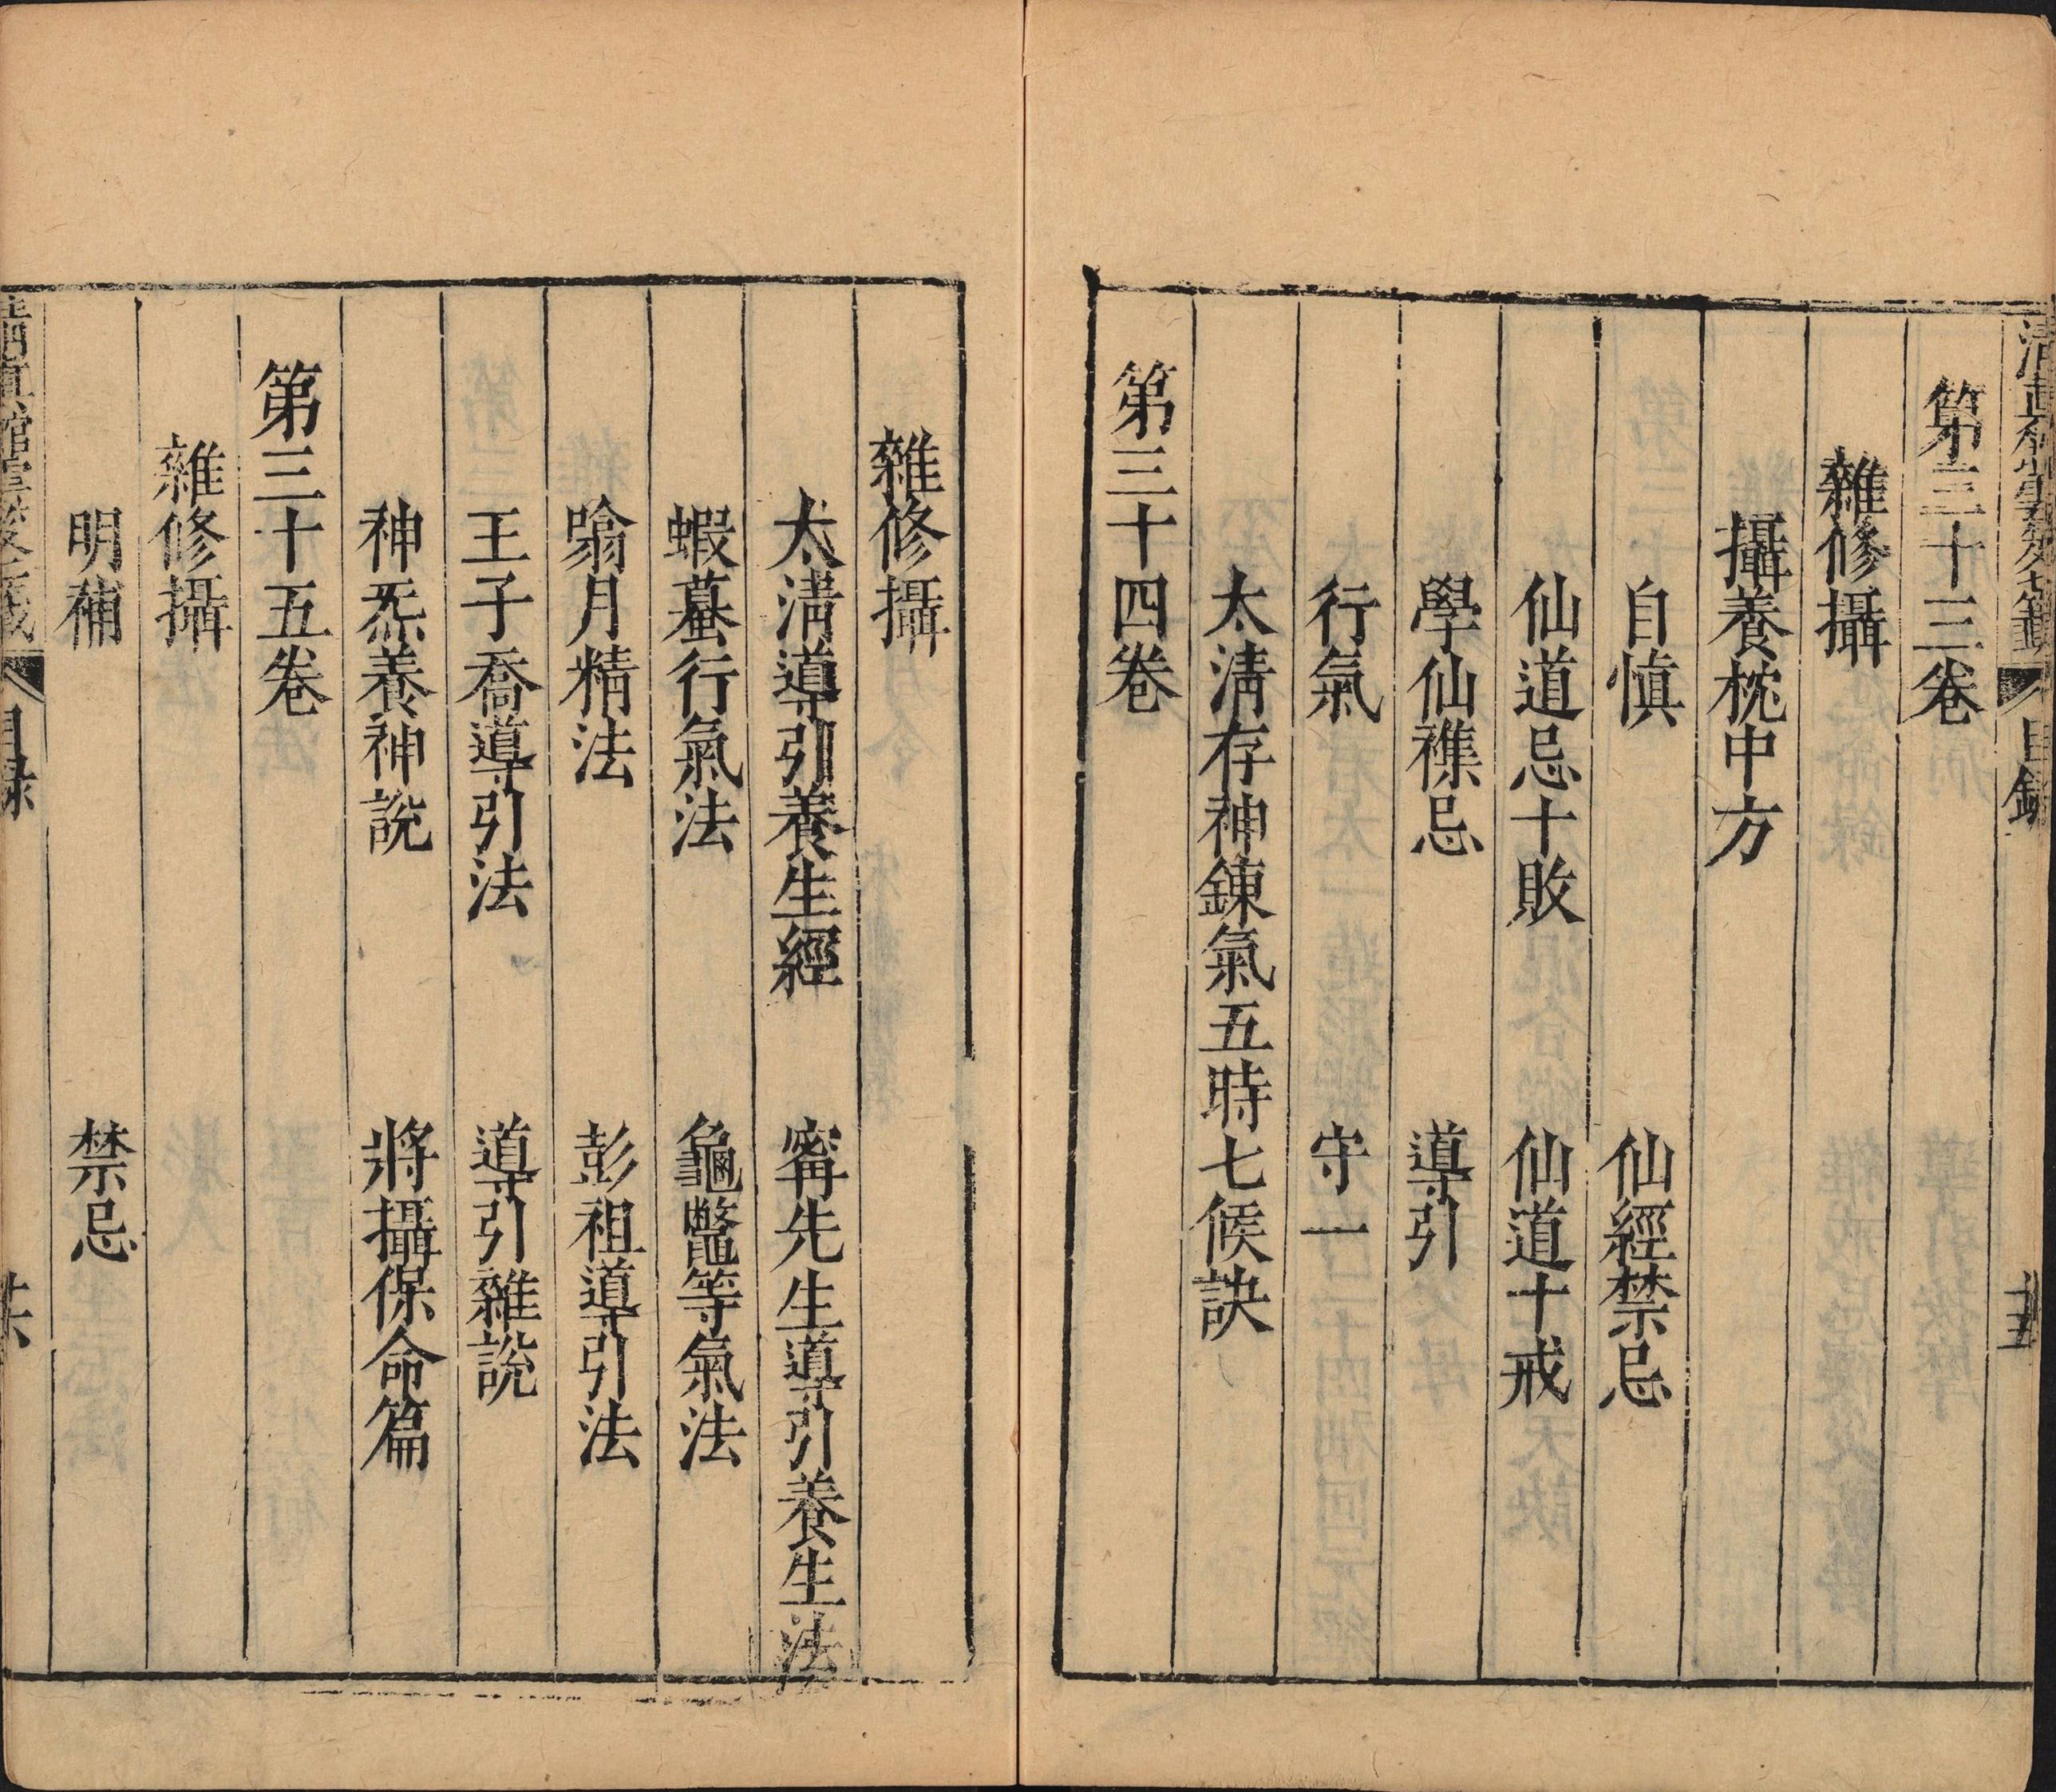 第三十三卷
雜修攝
攝養枕中方
自慎　仙經禁忌
仙道忌十敗　仙道十戒
學仙襍忌　導引
行氣　守一
太清存神鍊氣五時七候訣
第三十四卷
雜修攝
太清導引養生經　甯先生導引養生法
蝦蟇行氣法　龜鼈等氣法
噏月精法　彭祖導引法
王子喬導引法　導引雜說
神炁養神說　將攝保命篇
第三十五卷
雜修攝
明補　禁忌
目錄